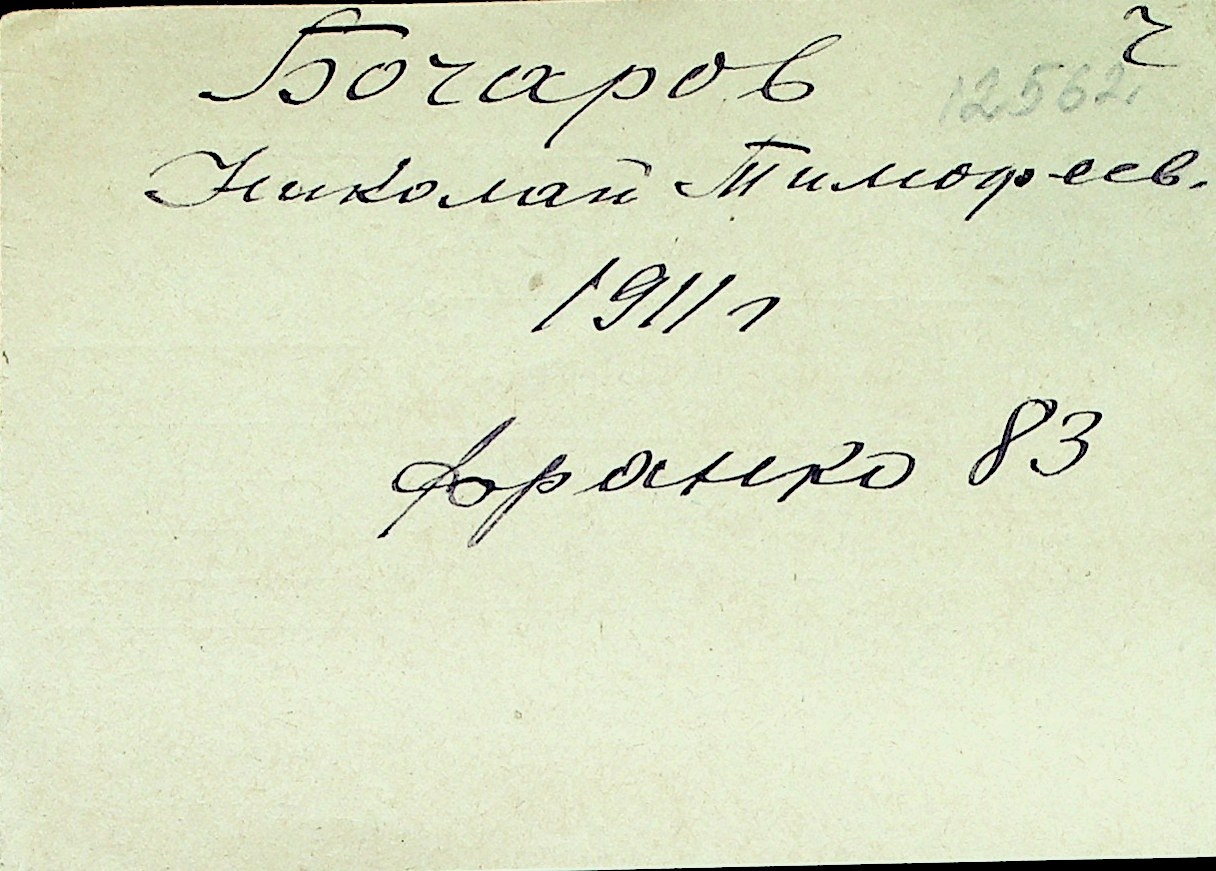 Бочаров ч
12562
Николай Тимофеев.
1911г
Франко 83